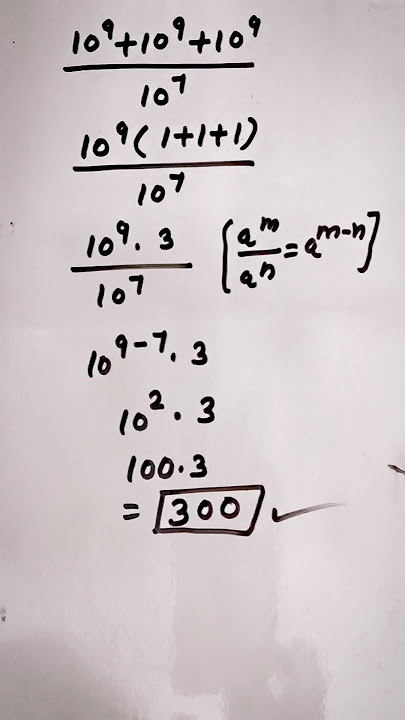 10⁹+10⁹+10⁹
10⁷
10⁹(1+1+1)
10⁷
10⁹. 3 [aᵐ/aⁿ = aᵐ⁻ⁿ]
10⁷
10⁹⁻⁷. 3
10². 3
100.3
= 300 ✓